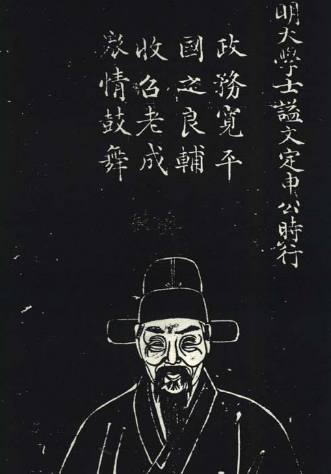 明大學士諡文定申公時行
政務寬平
國之良輔
收召老成
衆情鼓舞